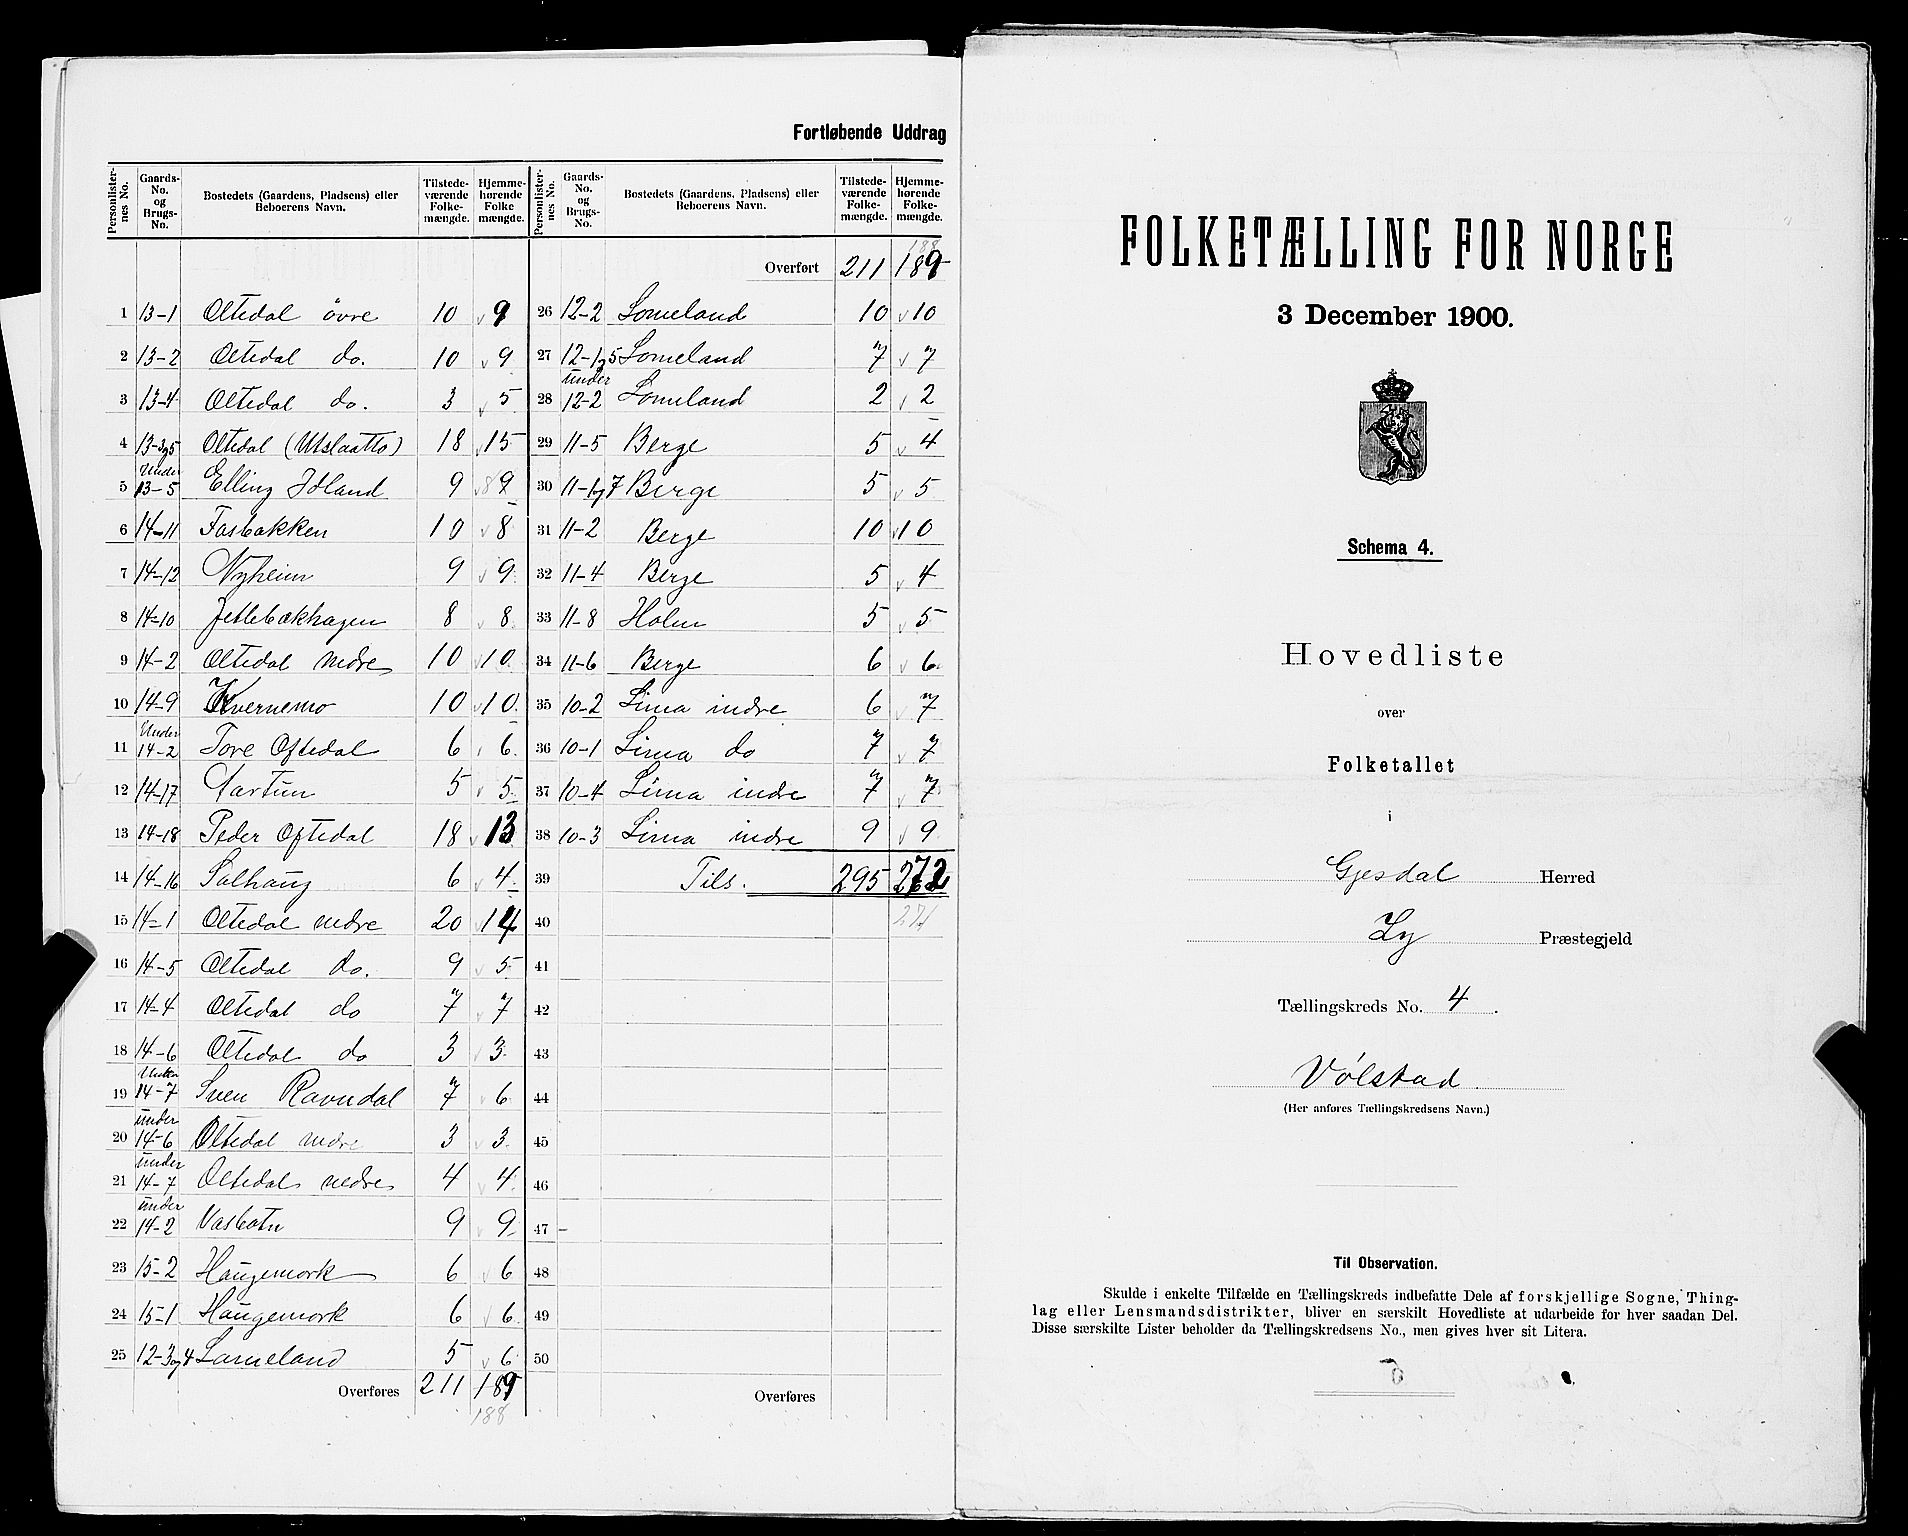 Fortløbende Uddrag
Personlisternes No. | Gaards-No. og Brugs-No. | Bostedets (Gaardens, Pladsens) eller Beboerens Navn. | Tilstedeværende Folkemængde. | Hjemmehørende Folkemængde.
1 13-1 Oltedal övre 10 9
2 13-2 Oltedal do. 10 9
3 13-4 Oltedal do. 3 5
4 13-3og5 Oltedal (Utslaatto) 18 15
5 Under 13-5 Elling Idland 9 9
6 14-11 Fasbakken 10 8
7 14-12 Nyheim 9 9
8 14-10 Jettebækhagen 8 8
9 14-2 Oltedal nedre 10 10
10 14-9 Kvernemo 10 10
11 Under 14-2 Tore Oftedal 6 6
12 14-17 Aartun 5 5
13 14-18 Peder Oftedal 18 13
14 14-16 Solhaug 6 4
15 14-1 Oltedal nedre 20 14
16 14-5 Oltedal do. 9 5
17 14-4 Oltedal do 7 7
18 14-6 Oltedal do 3 3
19 Under 14-7 Sven Ravndal 7 6
20 under 14-6 Oltedal nedre 3 3
21 under 14-7 Oltedal nedre 4 4
22 under 14-2 Vasbotn 9 9
23 15-2 Haugemork 6 6
24 15-1 Haugemork 6 6
25 12-3og4 Lomeland 5 6
Overføres 211 189
188
Personlisternes No. | Gaards-No. og Brugs-No. | Bostedets (Gaardens, Pladsens) eller Beboerens Navn. | Tilstedeværende Folkemængde. | Hjemmehørende Folkemængde.
188
Overført 211 189
26 12-2 Lomeland 10 10
27 12-1og5 Lomeland 7 7
28 under 12-2 Lomeland 2 2
29 11-5 Berge 5 4
30 11-1og7 Berge 5 5
31 11-2 Berge 10 10
32 11-4 Berge 5 4
33 11-8 Holen 5 5
34 11-6 Berge 6 6
35 10-2 Lima indre 6 7
36 10-1 Lima do 7 7
37 10-4 Lima indre 7 7
38 10-3 Lima indre 9 9
39 Tils. 295 272
40 271
41
42
43
44
45
46
47
48
49
50
Overføres
FOLKETÆLLING FOR NORGE
3 December 1900.
Schema 4.
Hovedliste
over
Folketallet
i
Gjesdal Herred
Ly Præstegjeld
Tællingskreds No. 4.
Vølstad
(Her anføres Tællingskredsens Navn.)
Til Observation.
Skulde i enkelte Tilfælde en Tællingskreds indbefatte Dele af forskjellige Sogne, Thing-
lag eller Lensmandsdistrikter, bliver en særskilt Hovedliste at udarbeide for hver saadan Del.
Disse særskilte Lister beholder da Tællingskredsens No., men gives hver sit Litera.